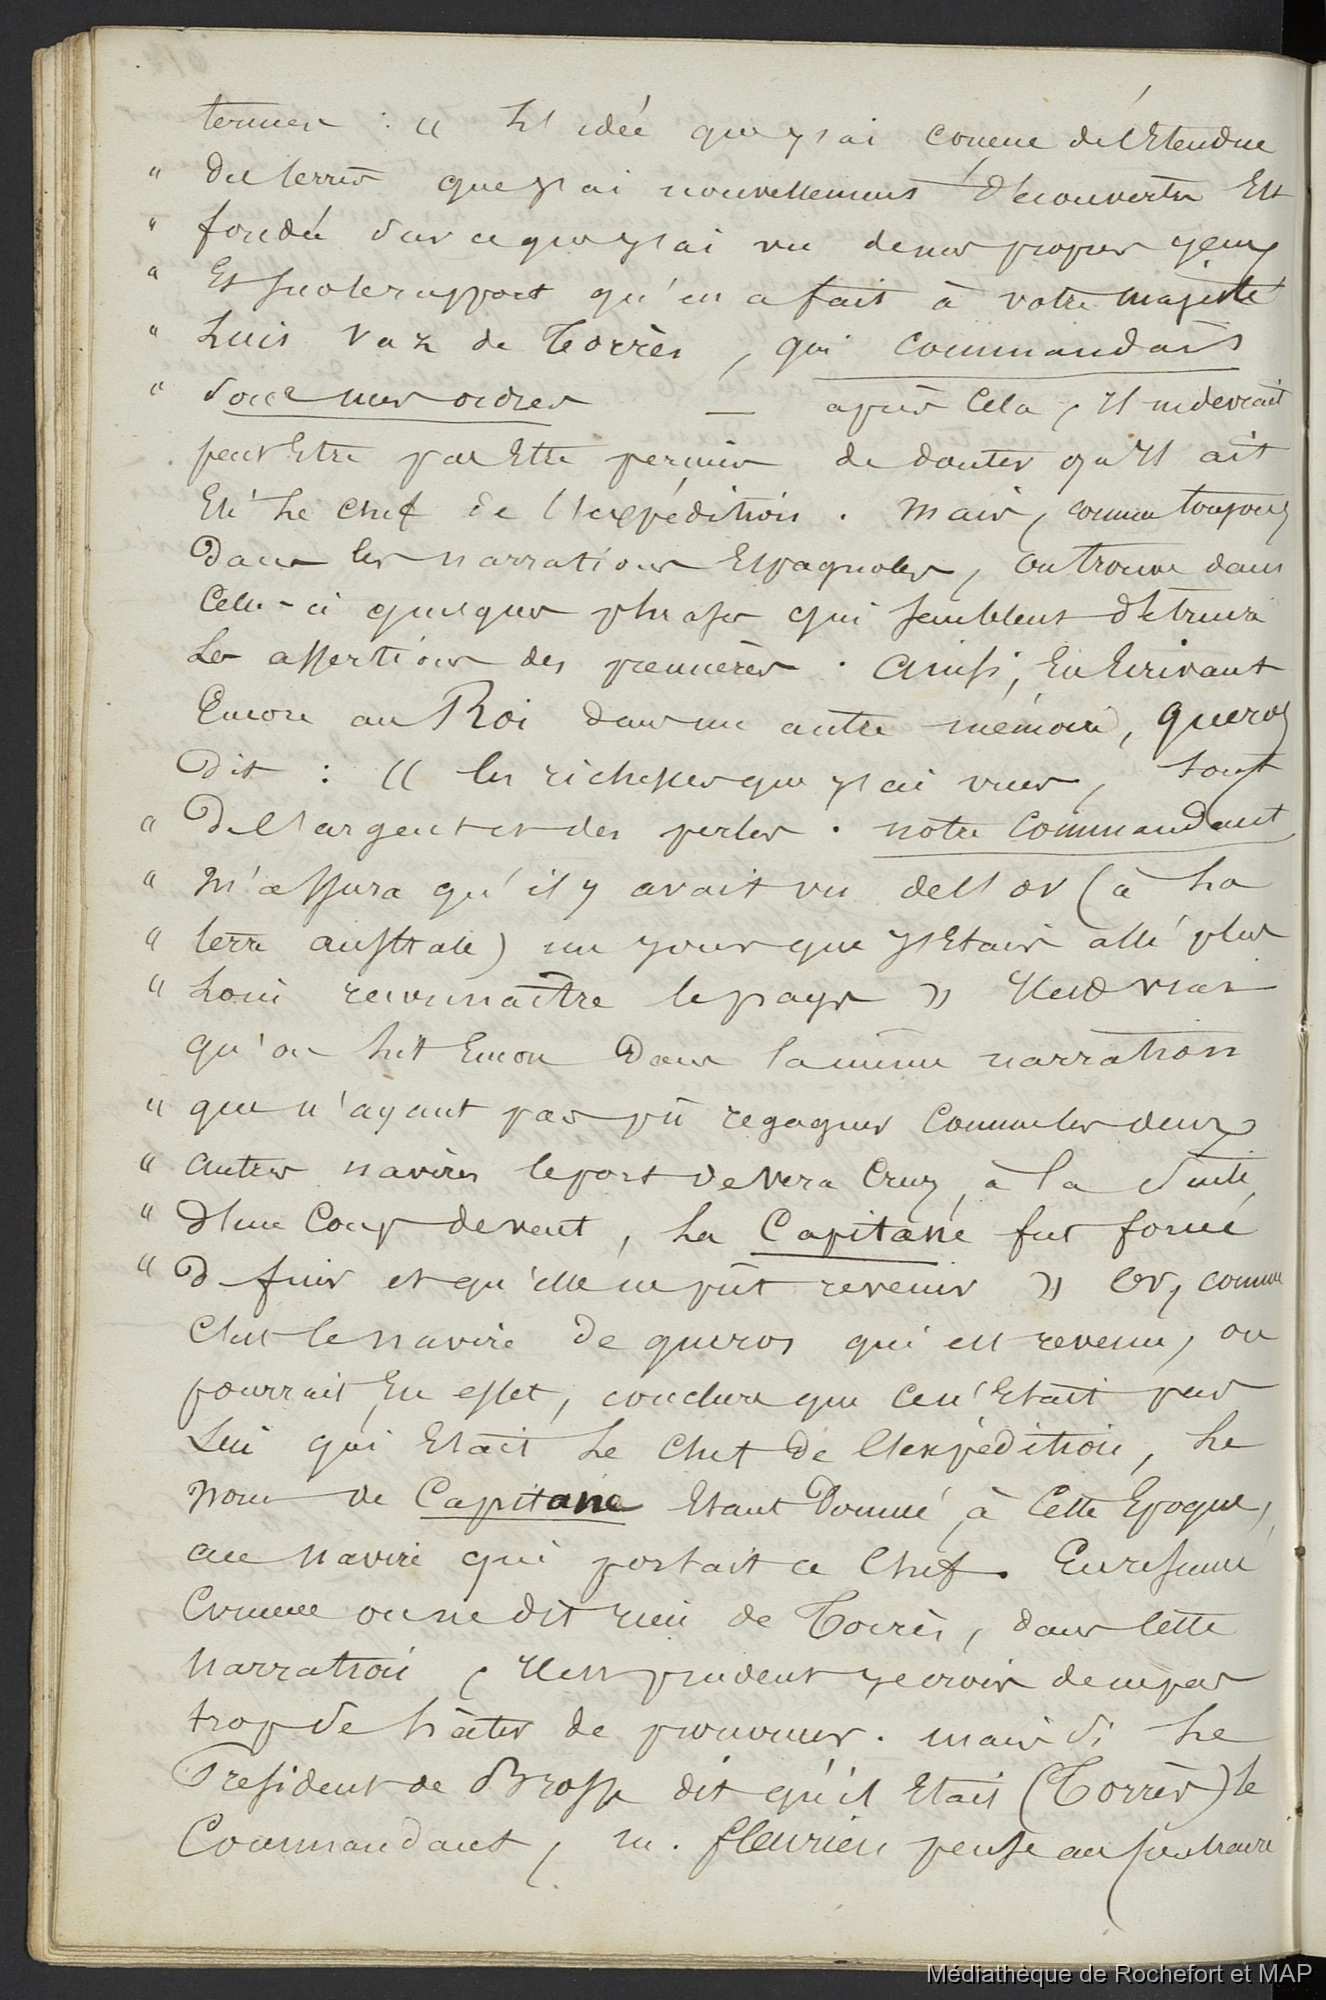 termes : « L'idée que j'ai conçue de l'Etendue
" des terres que j'ai nouvellement Découvertes Est
" fondée sur ce que j'ai vu de mes propres yeux
" Et sur le rapport qu'en a fait à votre majesté
" Luis Vaz de Torrès, qui commandait
" sous mes ordres — après Cela, Il ne devrait
peut Etre pas Etre permis de douter qu'Il ait
Eté Le chef de l'expédition. Mais, comme toujours
Dans les narrations Espagnoles, on trouve dans
Celle-ci quelques phrases qui semblent détruire
Les assertions des premières. Ainsi, En Ecrivant
Encore au Roi dans un autre mémoire, queros
Dit : « les richesses que j'ai vues, sont
" De l'argent et des perles. notre Commandant
" M'assura qu'il y avait vu de l'or (à La
" terre australe) un jour que j'Etais allé plus
" Loin reconnaître le pays » Il est vrai
qu'on Lit Encore Dans la même narration
" que n'ayant pas pû regagner Comme les deux
" autres navires le port de Vera Cruz, à la suite
" D'un Coup de vent, La Capitane fut forcé
" D fuir et qu'elle ne pût revenir » Or, comme
C'est le navire De queros qui est revenu, on
pourrait En effet, conclure que Ce n'Etait pas
Lui qui Etait Le chef de l'expédition, Le
Nom de Capitane Etant Donné, à Cette Epoque,
au Navire qui portait ce Chef. En résumé
Comme on ne dit rien de Torrès, dans Cette
Narration, Il est prudent je crois de ne pas
trop se hâter de prononcer. mais si Le
President de Brosse dit qu'il Etait (Torrès) le
Commandant, m. fleurieu pense au Contraire
Médiathèque de Rochefort et MAP